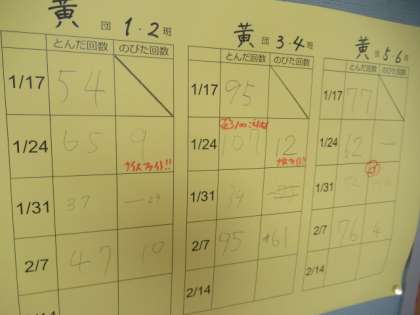 黄 団 1・2 班
とんだ回数 のびた回数
1/17 54
1/24 65 9
ナイスファイト!!
1/31 37 -29
2/7 47 10
黄 団 3・4 班
とんだ回数 のびた回数
1/17 95
1/24 107 12
1/31 39
2/7 95 +61
2/14
黄 団 5 6 班
とんだ回数 のびた回数
1/17 77
1/24
1/31
2/7 76 4
2/14